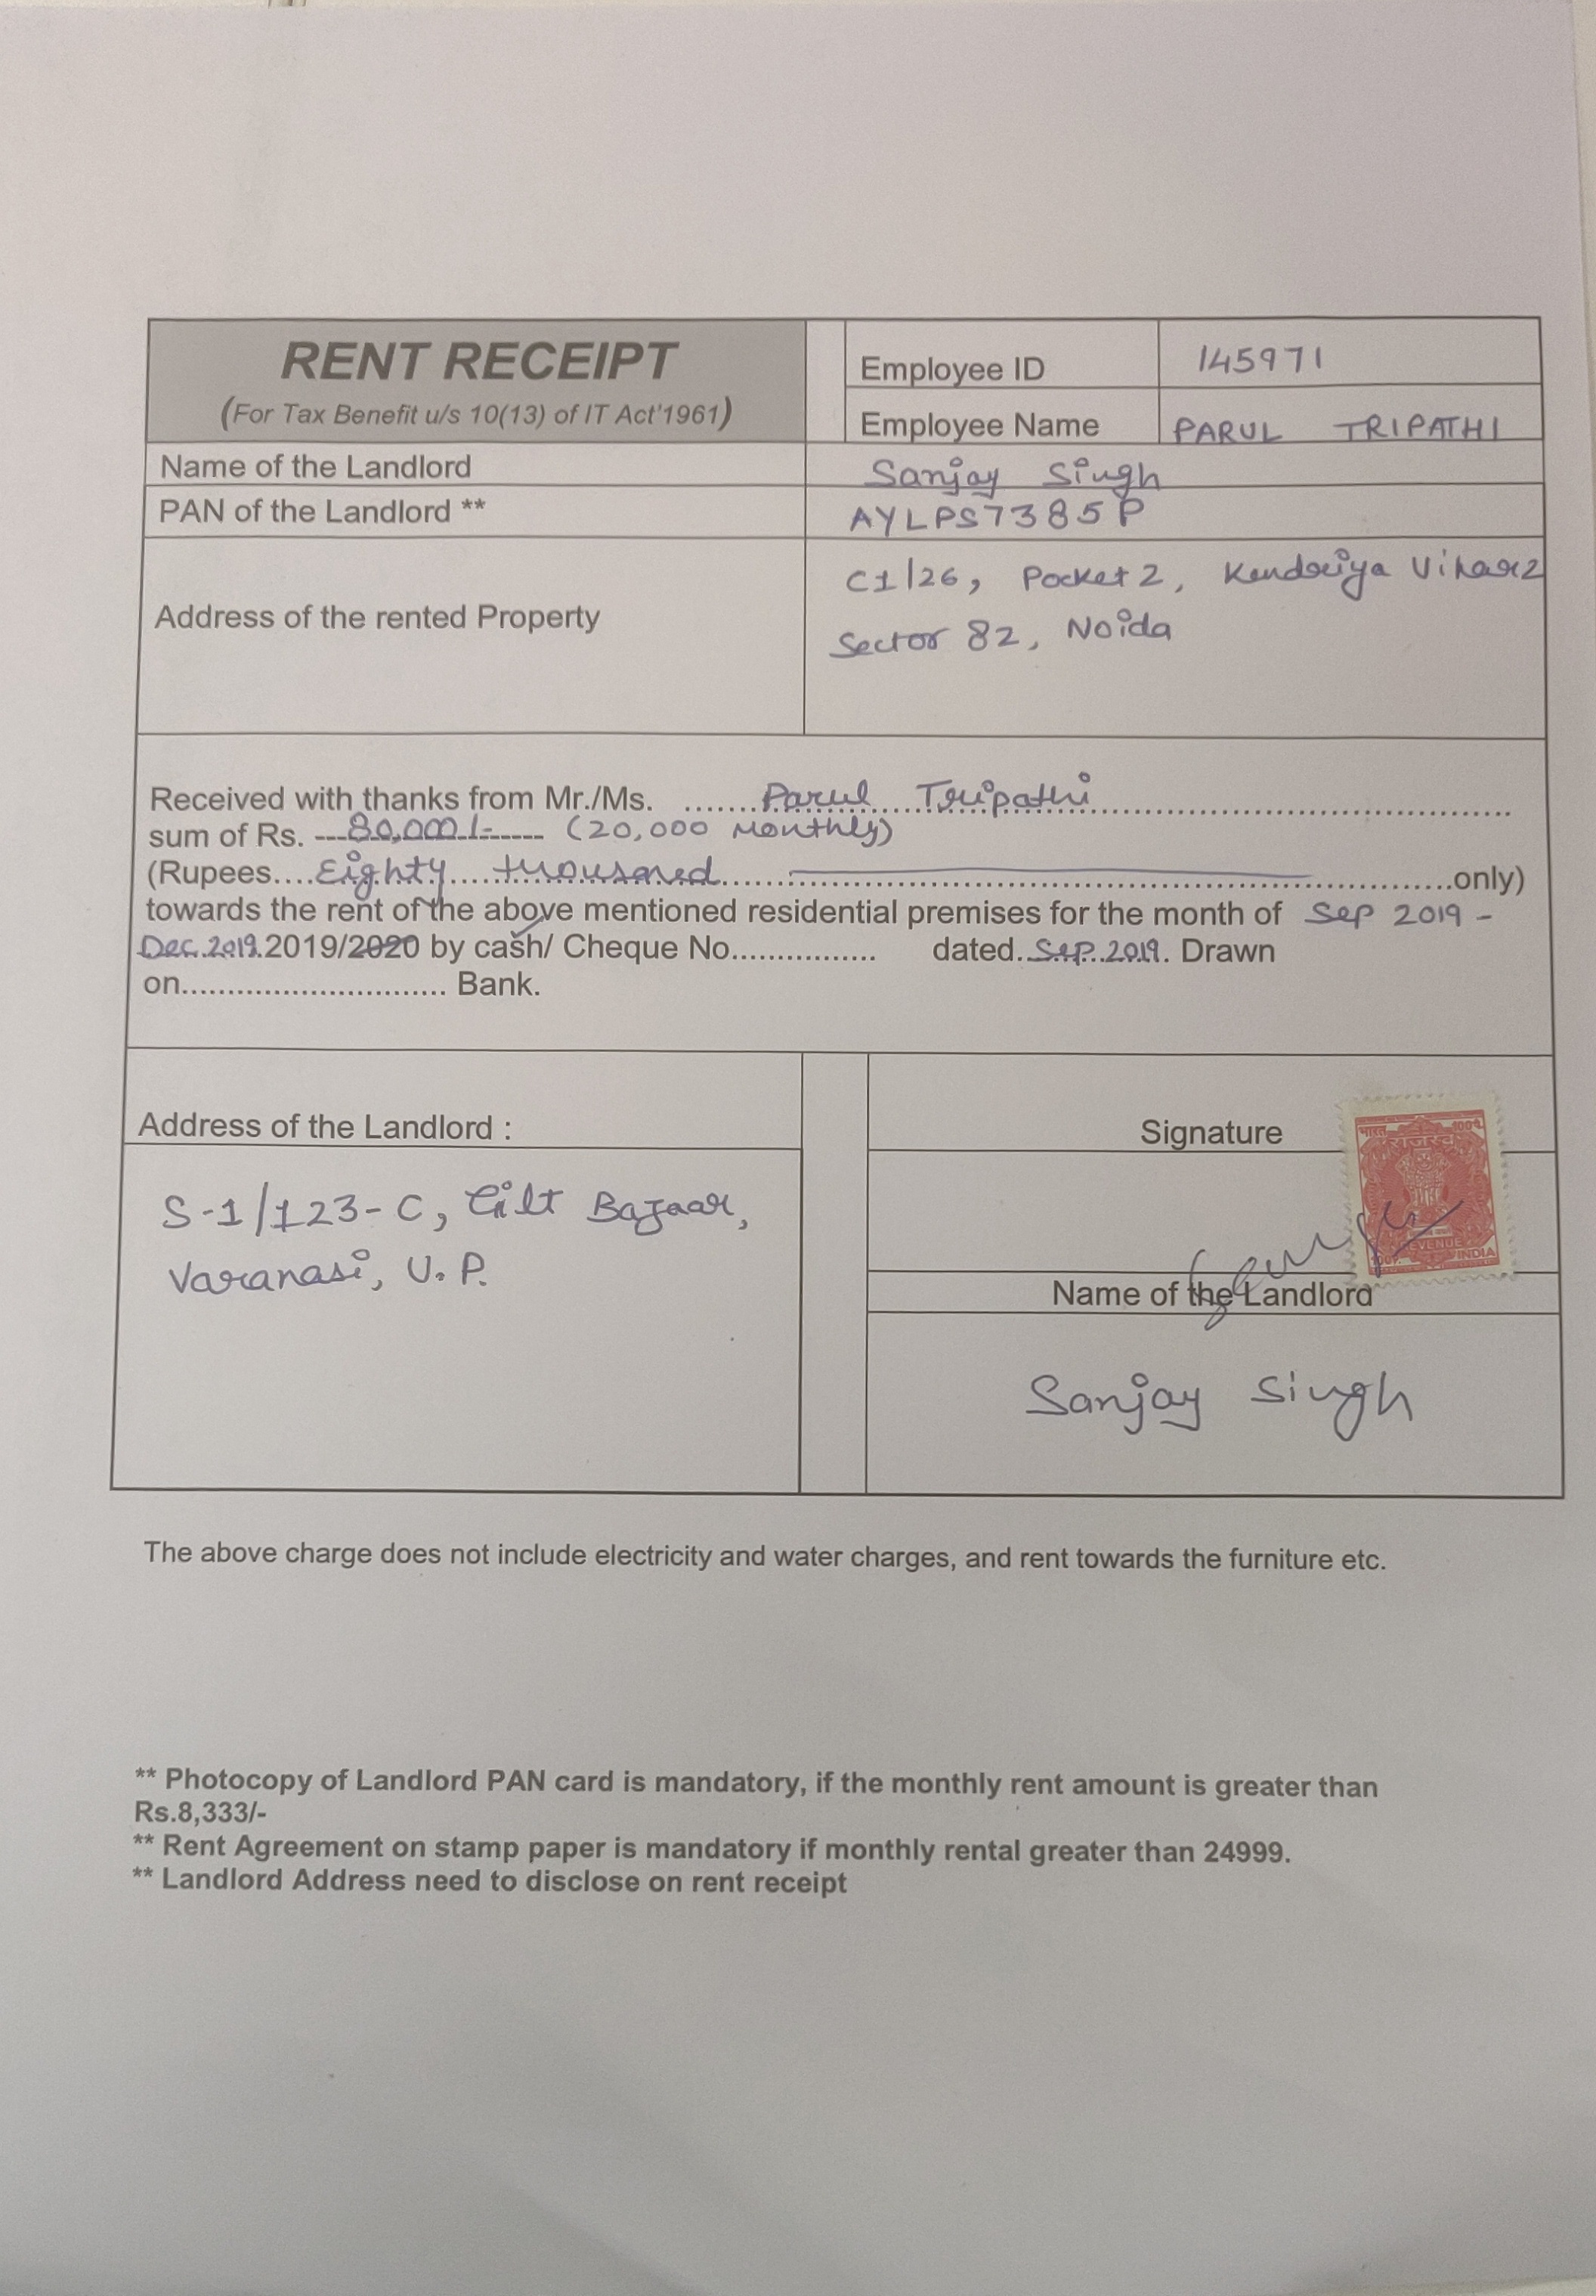 RENT RECEIPT
(For Tax Benefit u/s 10(13) of IT Act'1961)
Employee ID 145971
Employee Name PARUL TRIPATHI
Name of the Landlord Sanjay Singh
PAN of the Landlord ** AYLPS7385P
Address of the rented Property C1/26, Pocket 2, Kendriya Vihar 2
Sector 82, Noida
Received with thanks from Mr./Ms. .......Parul Tripathi..........
sum of Rs. ---80,000/------- (20,000 Monthly)
(Rupees....Eighty.....thousand..........only)
towards the rent of the above mentioned residential premises for the month of Sep 2019 -
Dec.2019.2019/2020 by cash/ Cheque No................ dated..Sep.2019. Drawn
on............................ Bank.
Address of the Landlord :
S-1/123-C, Bazaar,
Varanasi, U.P.
Signature
भारत 100प.
REVENUE
INDIA
Name of the Landlord
Sanjay Singh
The above charge does not include electricity and water charges, and rent towards the furniture etc.
** Photocopy of Landlord PAN card is mandatory, if the monthly rent amount is greater than
Rs.8,333/-
** Rent Agreement on stamp paper is mandatory if monthly rental greater than 24999.
** Landlord Address need to disclose on rent receipt